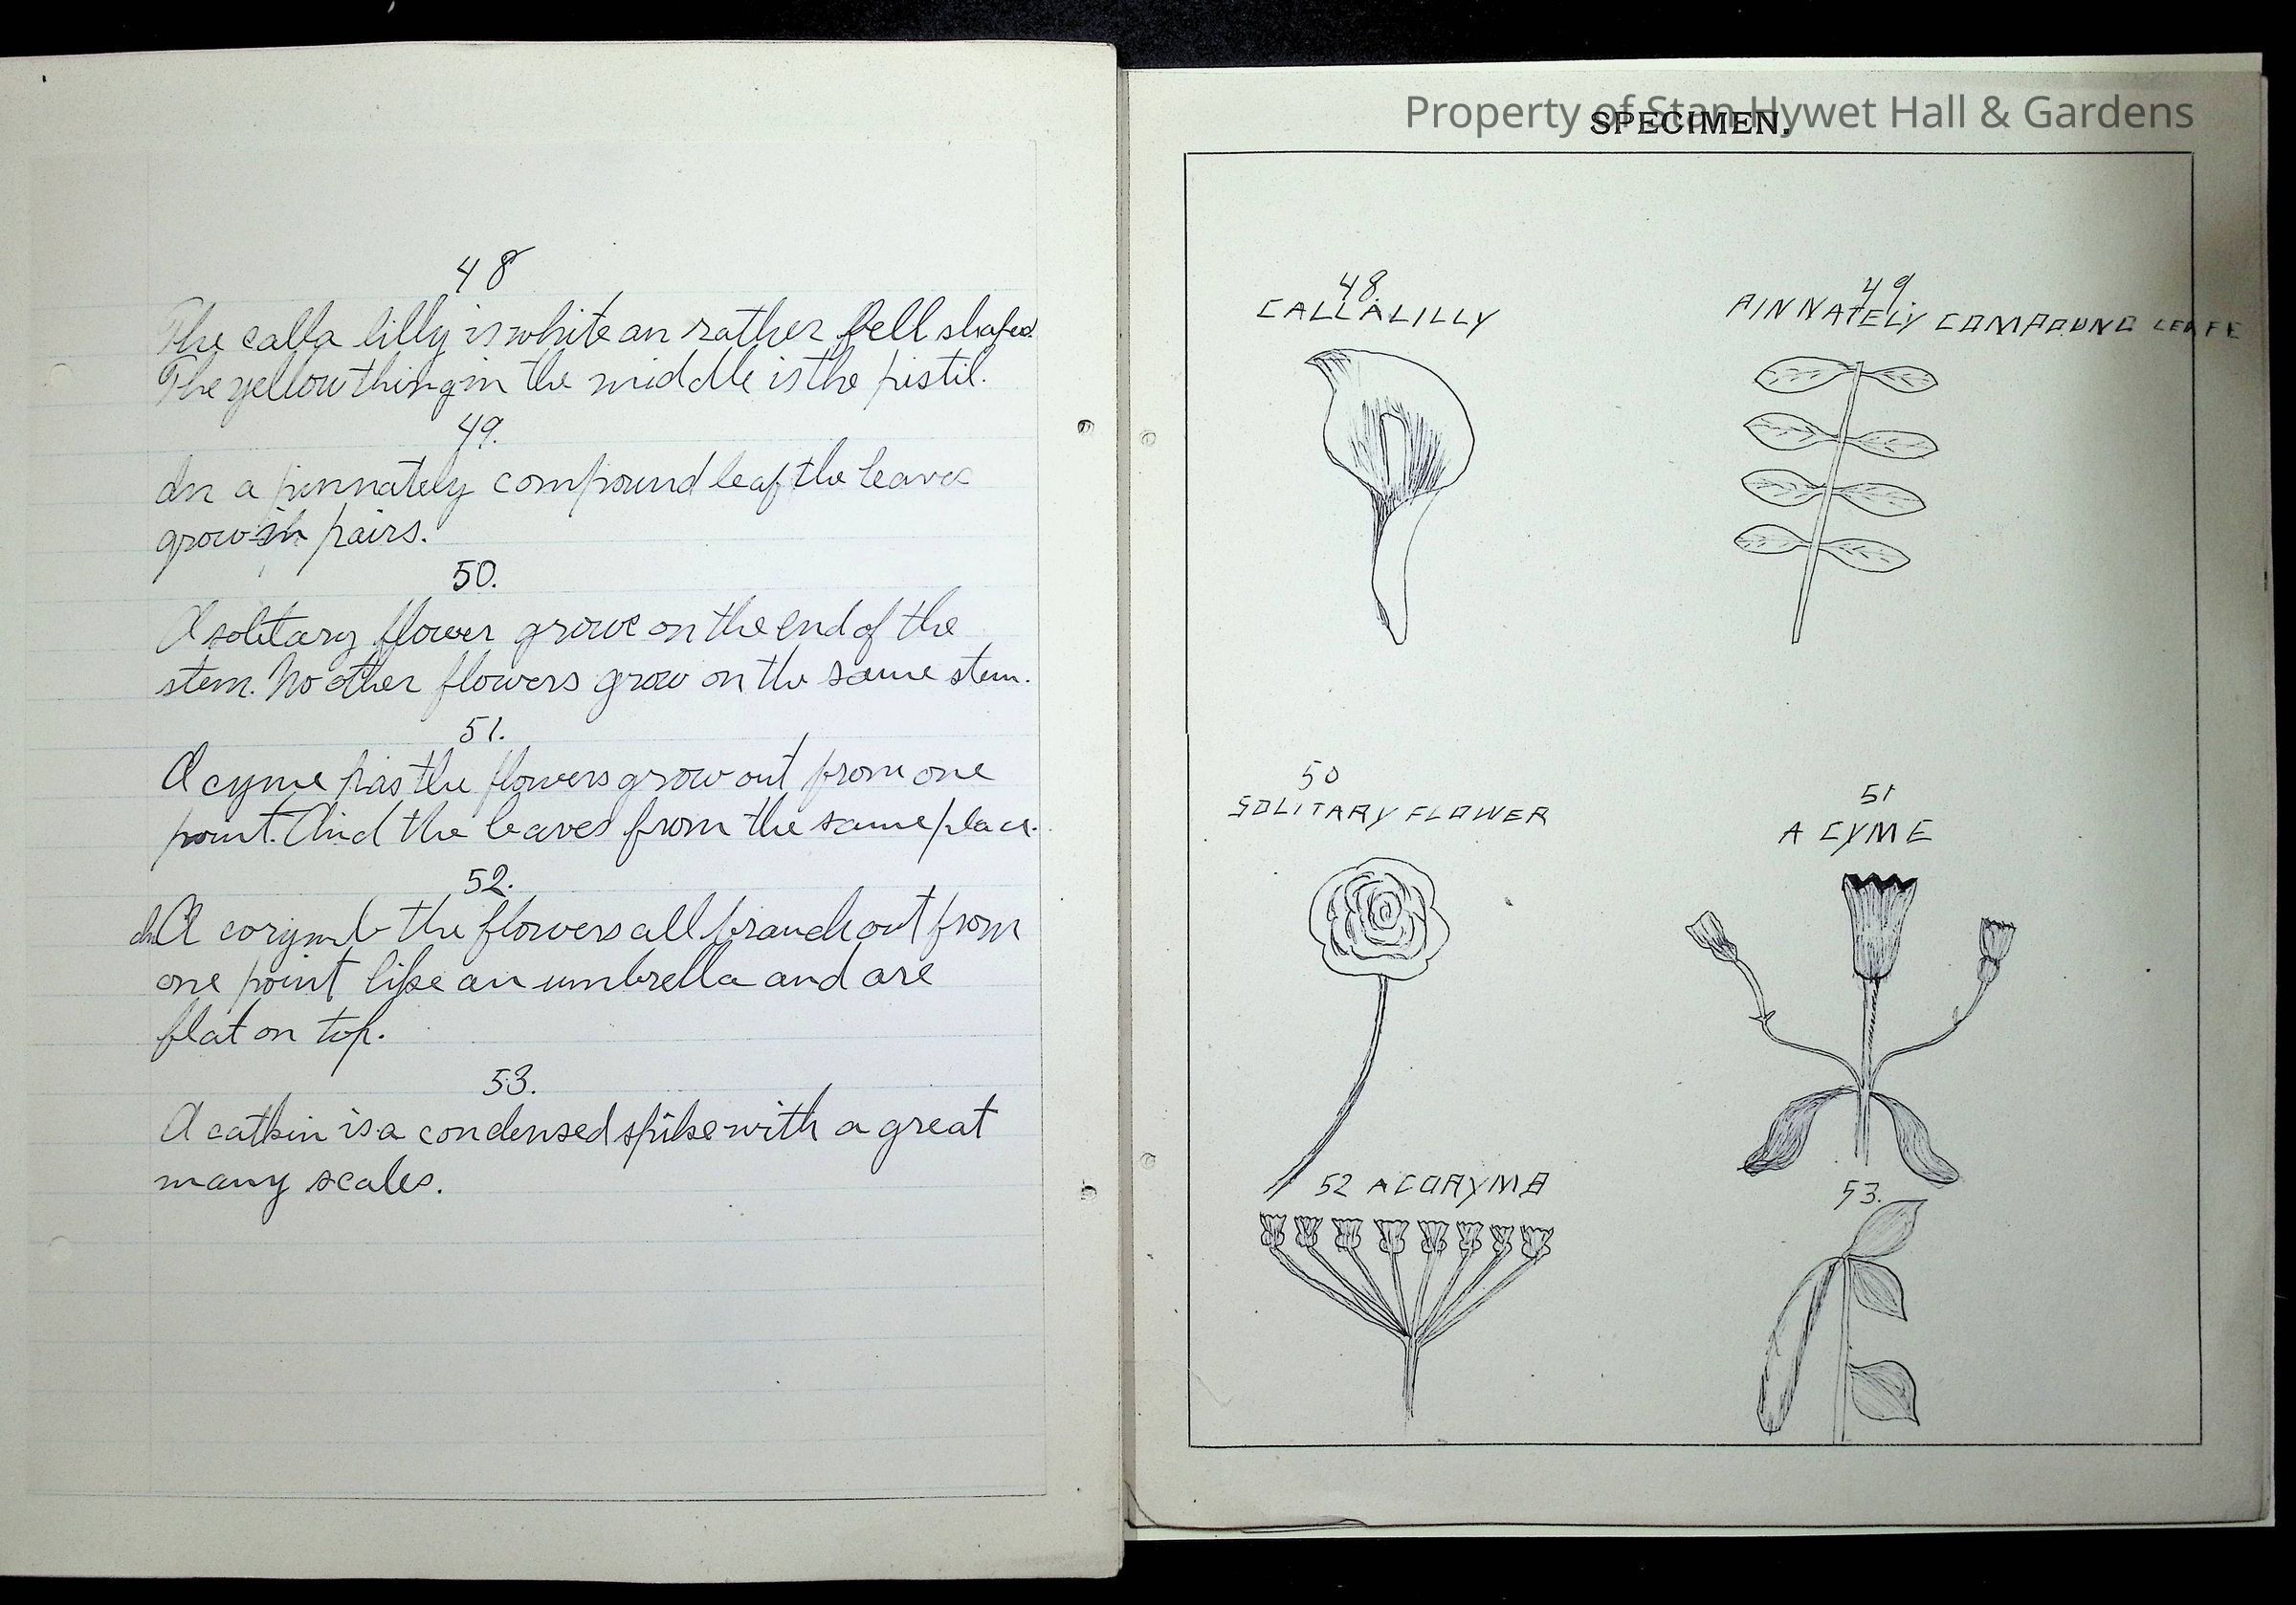 48
The calla lilly is white an rather bell shaped.
The yellow thing in the middle is the pistil.
49.
In a pinnately compound leaf the leaves
grow in pairs.
50.
A solitary flower grows on the end of the
stem. No other flowers grow on the same stem.
51.
A cyme has the flowers grow out from one
point. And the leaves from the same place.
52.
In A corymb the flowers all branch out from
one point like an umbrella and are
flat on top.
53.
A catkin is a condensed spike with a great
many scales.
Property of Stan Hywet Hall & Gardens
SPECIMEN.
48.
CALLA LILLY
49.
PINNATELY COMPOUND LEAFE
50
SOLITARY FLOWER
51
A CYME
52 A CORYMB
53.